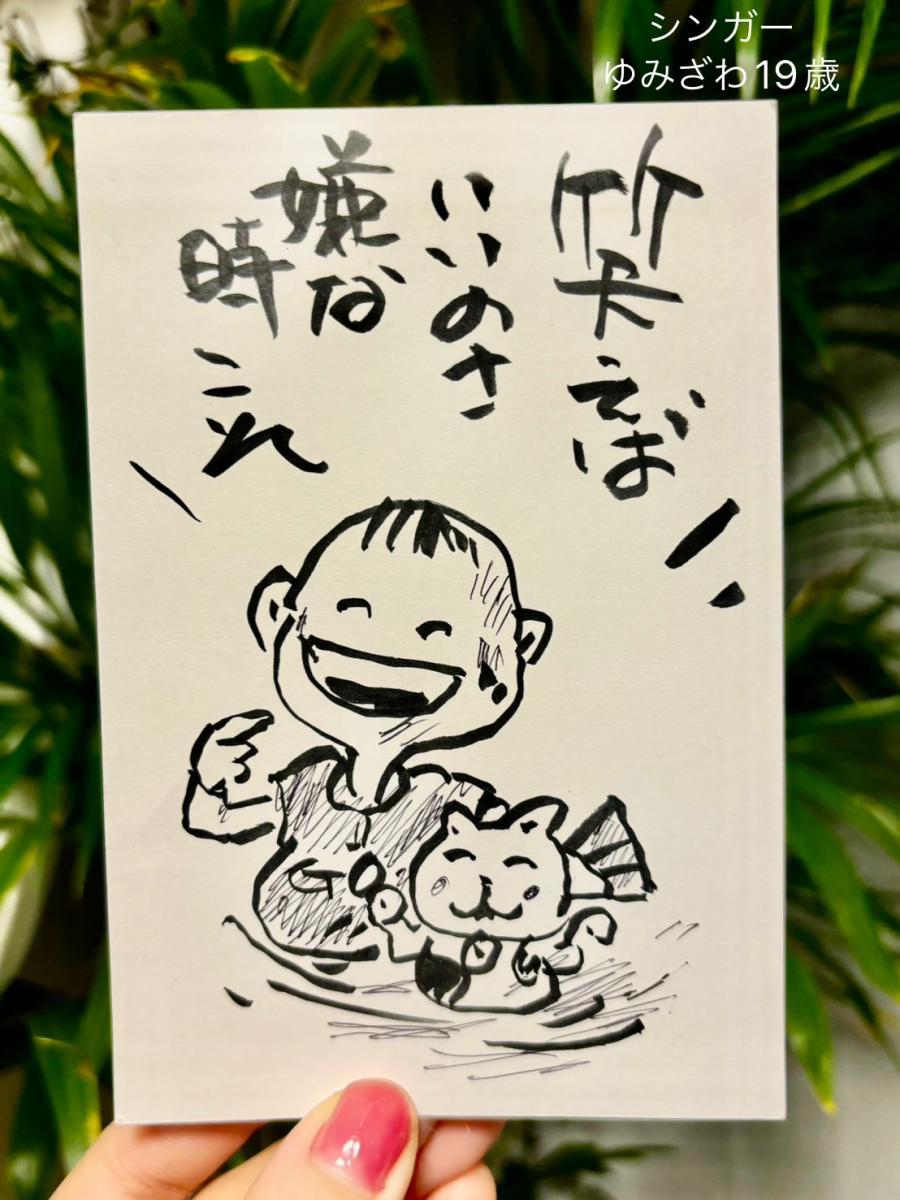 シンガー
ゆみざわ19歳
笑えば
いいのさ
嫌な
時こそ